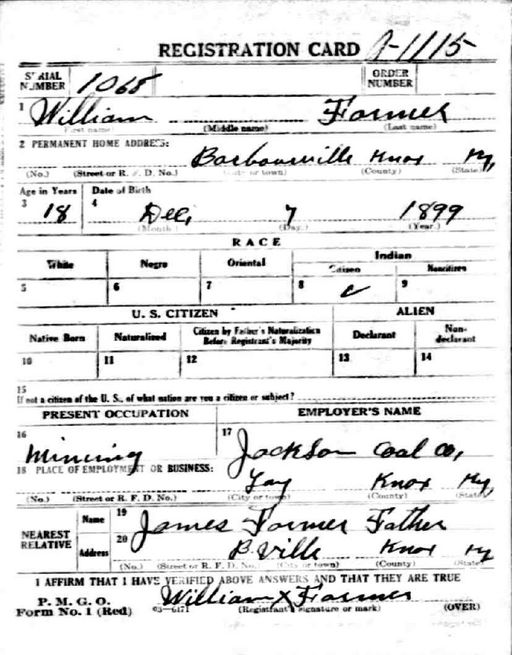 REGISTRATION CARD A-1115
SERIAL NUMBER 1068 ORDER NUMBER
1 William Farmer
(First name) (Middle name) (Last name)
2 PERMANENT HOME ADDRESS:
Barbourville Knox Ky,
(No.) (Street or R. F. D. No.) (City or town) (County) (State)
Age in Years Date of Birth
3 18 4 Dec, 7 1899
(Month) (Day.) (Year.)
RACE
White Negro Oriental Indian
Citizen Noncitizen
5 6 7 8 ✓ 9
U. S. CITIZEN ALIEN
Native Born Naturalized Citizen by Father's Naturalization Before Registrant's Majority Declarant Non-declarant
10 11 12 13 14
15
If not a citizen of the U. S., of what nation are you a citizen or subject?
PRESENT OCCUPATION EMPLOYER'S NAME
16 Mining 17 Jackson Coal Co,
18 PLACE OF EMPLOYMENT OR BUSINESS:
Knox Ky,
(No.) (Street or R. F. D. No.) (City or town) (County) (State)
NEAREST RELATIVE
Name 19 James Farmer Father
Address 20 B. Ville Knox Ky
(No.) (Street or R. F. D. No.) (City or town) (County) (State)
I AFFIRM THAT I HAVE VERIFIED ABOVE ANSWERS AND THAT THEY ARE TRUE
P. M. G. O.
Form No. 1 (Red) 03-6171 William X Farmer
(Registrant's signature or mark) (OVER)